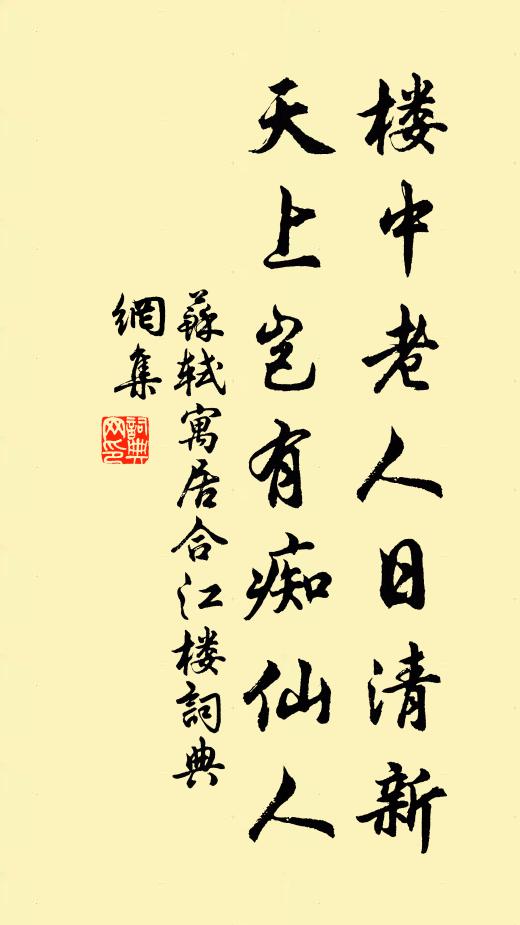 楼中老人日清新
天上岂有痴仙人
蘇軾寓居合江楼詞典
網集
詞典
网印